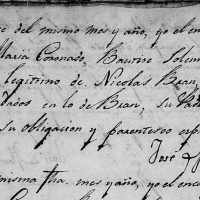 de del mismo mes y año, yo el en
Maria Coronado, Bautice Solem
legitimo de Nicolas Bean,
vados en lo de Bean, su Pad
su obligacion y parentesco esp
José
misma fha. mes y año, yo el enc